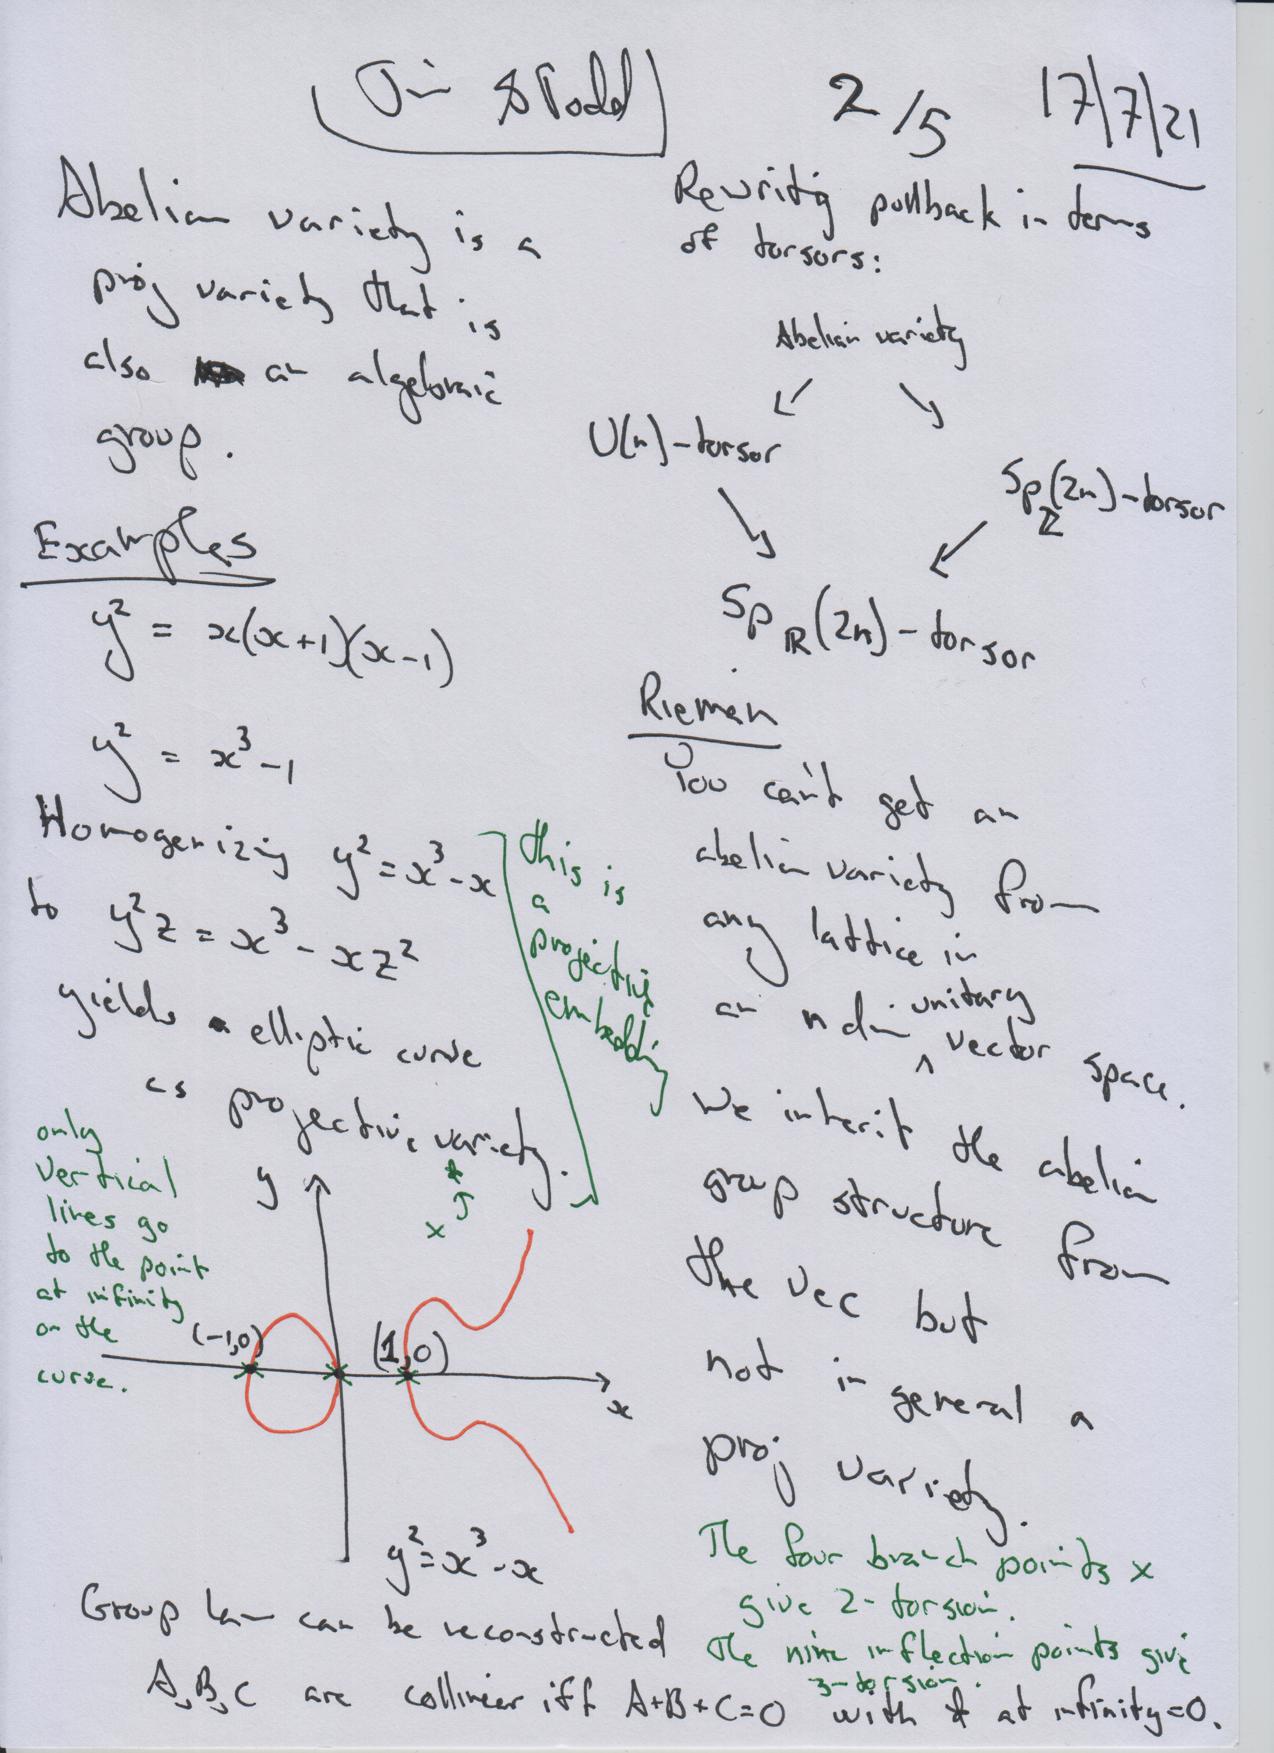 Jim & Todd
2/5
17/7/21
Abelian variety is a
proj variety that is
also an algebraic
group.
Examples
y² = x(x+1)(x-1)
y² = x³-1
Homogenizing y² = x³-x
to y²z = x³ - xz²
yields a elliptic curve
as projective variety.
this is
a
projective
embedding
only
vertical
lines go
to the point
at infinity
on the
curve.
y
*
x
(-1,0)
(1,0)
x
y² = x³-x
Rewriting pullback in terms
of torsors:
Abelian variety
U(n)-torsor
Sp_Z(2n)-torsor
Sp_R(2n)-torsor
Riemann
You can't get an
abelian variety from
any lattice in
an n dim unitary vector space.
We inherit the abelian
group structure from
the vec but
not in general a
proj variety.
The four branch points x
give 2-torsion.
The nine inflection points give
3-torsion.
Group law can be reconstructed
A,B,C are collinear iff A+B+C=0 with * at infinity=0.